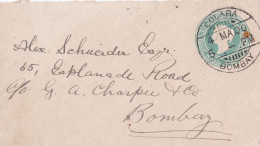 COLABA
4 MA 00
BOMBAY
Alex. Schneider Esqr.
65, Esplanade Road
c/o G. A. Charpié & Co
Bombay